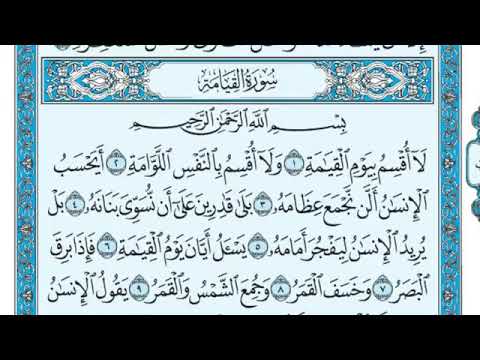 سُورَةُ القِيَامَةِ
بِسْمِ اللَّهِ الرَّحْمَٰنِ الرَّحِيمِ
لَا أُقْسِمُ بِيَوْمِ الْقِيَامَةِ ١ وَلَا أُقْسِمُ بِالنَّفْسِ اللَّوَّامَةِ ٢ أَيَحْسَبُ
الْإِنسَانُ أَلَّن نَّجْمَعَ عِظَامَهُ ٣ بَلَىٰ قَادِرِينَ عَلَىٰ أَن نُّسَوِّيَ بَنَانَهُ ٤ بَلْ
يُرِيدُ الْإِنسَانُ لِيَفْجُرَ أَمَامَهُ ٥ يَسْـَٔلُ أَيَّانَ يَوْمُ الْقِيَامَةِ ٦ فَإِذَا بَرِقَ
الْبَصَرُ ٧ وَخَسَفَ الْقَمَرُ ٨ وَجُمِعَ الشَّمْسُ وَالْقَمَرُ ٩ يَقُولُ الْإِنسَانُ